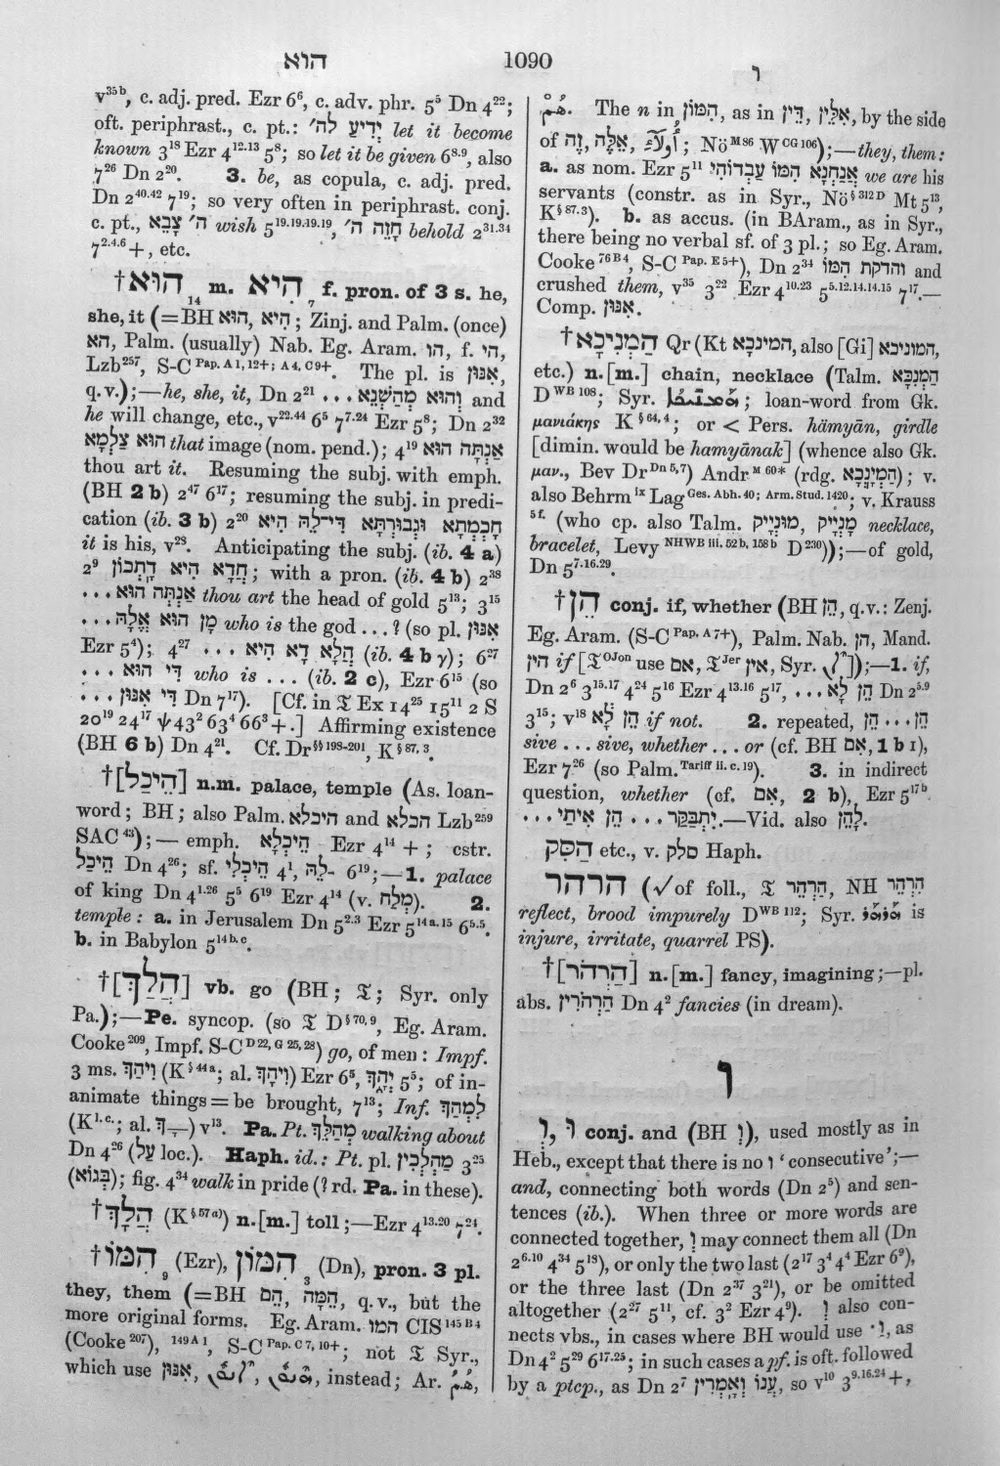 הוא 1090 ו
v³⁵ᵇ, c. adj. pred. Ezr 6⁶, c. adv. phr. 5⁵ Dn 4²²;
oft. periphrast., c. pt.: יְדִיעַ לֶה׳ let it become
known 3¹⁸ Ezr 4¹²·¹³ 5⁸; so let it be given 6⁸·⁹, also
7²⁶ Dn 2²⁰. 3. be, as copula, c. adj. pred.
Dn 2⁴⁰·⁴² 7¹⁹; so very often in periphrast. conj.
c. pt., ה׳ צָבֵא wish 5¹⁹·¹⁹·¹⁹·¹⁹, חָזֵה ה׳ behold 2³¹·³⁴
7²·⁴·⁶ +, etc.
†הוּא₁₄ m. הִיא₇ f. pron. of 3 s. he,
she, it (=BH הוּא, הִיא; Zinj. and Palm. (once)
הא, Palm. (usually) Nab. Eg. Aram. הו, f. הי,
Lzb²⁵⁷, S-C Pap. A 1, 12+; A 4, C 9+. The pl. is אִנּוּן,
q.v.);—he, she, it, Dn 2²¹ וְהוּא מְהַשְׁנֵא ... and
he will change, etc., v²²·⁴⁴ 6⁵ 7⁷·²⁴ Ezr 5⁸; Dn 2³²
הוּא צַלְמָא that image (nom. pend.); 4¹⁹ אַנְתָּה הוּא
thou art it. Resuming the subj. with emph.
(BH 2 b) 2⁴⁷ 6¹⁷; resuming the subj. in predi-
cation (ib. 3 b) 2²⁰ חָכְמְתָא וּגְבוּרְתָּא דִּי־לֵהּ הִיא
it is his, v²⁸. Anticipating the subj. (ib. 4 a)
2⁹ חֲדָא הִיא דָתְכוֹן; with a pron. (ib. 4 b) 2³⁸
אַנְתָּה הוּא ... thou art the head of gold 5¹³; 3¹⁵
מַן הוּא אֱלָהּ ... who is the god ...? (so pl. אִנּוּן
Ezr 5⁴); 4²⁷ הֲלָא דָא הִיא ... (ib. 4 b γ); 6²⁷
דִּי הוּא ... who is ... (ib. 2 c), Ezr 6¹⁵ (so
דִּי אִנּוּן ... Dn 7¹⁷). [Cf. in 𝔗 Ex 14²⁵ 15¹¹ 2 S
20¹⁹ 24¹⁷ ψ 43² 63⁴ 66³ +.] Affirming existence
(BH 6 b) Dn 4²¹. Cf. Dr §§ 198-201, K § 87, 3.
†[הֵיכַל] n.m. palace, temple (As. loan-
word; BH; also Palm. היכלא and הכלא Lzb²⁵⁹
SAC⁴³);—emph. הֵיכְלָא Ezr 4¹⁴ +; cstr.
הֵיכַל Dn 4²⁶; sf. הֵיכְלִי 4¹, ־לֵהּ 6¹⁹;—1. palace
of king Dn 4¹·²⁶ 5⁵ 6¹⁹ Ezr 4¹⁴ (v. מְלַח). 2.
temple: a. in Jerusalem Dn 5²·³ Ezr 5¹⁴ᵃ·¹⁵ 6⁵·⁵.
b. in Babylon 5¹⁴ᵇ·ᶜ.
†[הֲלַךְ] vb. go (BH; 𝔗; Syr. only
Pa.);—Pe. syncop. (so 𝔗 D § 70, 9, Eg. Aram.
Cooke²⁰⁹, Impf. S-C D 22, G 25, 28) go, of men: Impf.
3 ms. יְהָךְ (K § 44 a; al. יְהַךְ) Ezr 6⁵, יְהָךְ 5⁵; of in-
animate things = be brought, 7¹³; Inf. לִמְהָךְ
(K l. c.; al. ־ַךְ) v¹³. Pa. Pt. מְהַלֵּךְ walking about
Dn 4²⁶ (עַל loc.). Haph. id.: Pt. pl. מַהְלְכִין 3²⁵
(בְּגוֹא); fig. 4³⁴ walk in pride (? rd. Pa. in these).
†הֲלָךְ (K § 57 a)) n.[m.] toll;—Ezr 4¹³·²⁰ 7²⁴.
†הִמּוֹ₉ (Ezr), הִמּוֹן₃ (Dn), pron. 3 pl.
they, them (=BH הֵם, הֵמָּה, q.v., but the
more original forms. Eg. Aram. המו CIS 145 B 4
(Cooke²⁰⁷), 149 A 1, S-C Pap. C 7, 10+; not 𝔗 Syr.,
which use אִנּוּן, instead; Ar. هُمْ,
هُمُ. The n in הִמּוֹן, as in דֵּין, אִלֵּין, by the side
of זֶה, אֵלֶּה; Nö M 86 W CG 106);—they, them:
a. as nom. Ezr 5¹¹ אֲנַחְנָא הִמּוֹ עַבְדוֹהִי we are his
servants (constr. as in Syr., Nö § 312 D Mt 5¹³,
K § 87. 3). b. as accus. (in BAram., as in Syr.,
there being no verbal sf. of 3 pl.; so Eg. Aram.
Cooke 76 B 4, S-C Pap. E 5+), Dn 2³⁴ והדקת המו and
crushed them, v³⁵ 3²² Ezr 4¹⁰·²³ 5⁵·¹²·¹⁴·¹⁴·¹⁵ 7¹⁷.—
Comp. אִנּוּן.
†הַמְנִיכָא Qr (Kt המינכא, also [Gi] המוניכא,
etc.) n.[m.] chain, necklace (Talm. הַמְנְכָּא
D WB 108; Syr. ܗܡܢܝܟܐ; loan-word from Gk.
μανιάκης K § 64, 4; or < Pers. hāmyān, girdle
[dimin. would be hamyānak] (whence also Gk.
μαν., Bev Dr Dn 5, 7) Andr M 60* (rdg. הַמְיָנְכָא); v.
also Behrm ix Lag Ges. Abh. 40; Arm. Stud. 1420; v. Krauss
5 f. (who cp. also Talm. מוּנְיָיק, מָנְיָיק necklace,
bracelet, Levy NHWB iii. 52 b, 158 b D 230));—of gold,
Dn 5⁷·¹⁶·²⁹.
†הֵן conj. if, whether (BH הֵן, q.v.: Zenj.
Eg. Aram. (S-C Pap. A 7+), Palm. Nab. הן, Mand.
הין if [𝔗 OJon use אם, 𝔗 Jer אין, Syr. ܐܢ]);—1. if,
Dn 2⁶ 3¹⁵·¹⁷ 4²⁴ 5¹⁶ Ezr 4¹³·¹⁶ 5¹⁷, ... הֵן לָא Dn 2⁵·⁹
3¹⁵; v¹⁸ הֵן לָא if not. 2. repeated, הֵן ... הֵן
sive ... sive, whether ... or (cf. BH אִם, 1 b 1),
Ezr 7²⁶ (so Palm. Tariff ii. c. 19). 3. in indirect
question, whether (cf. אִם, 2 b), Ezr 5¹⁷ᵇ
יִתְבַּקַּר ... הֵן אִיתַי ....—Vid. also לָהֵן.
הַסִּק etc., v. סלק Haph.
הרהר (√ of foll., 𝔗 הַרְהֵר, NH הִרְהֵר
reflect, brood impurely D WB 112; Syr. ܗܪܗܪ is
injure, irritate, quarrel PS).
†[הַרְהֹר] n.[m.] fancy, imagining;—pl.
abs. הַרְהֹרִין Dn 4² fancies (in dream).
ו
וְ, וּ conj. and (BH וְ), used mostly as in
Heb., except that there is no ו ‘consecutive’;—
and, connecting both words (Dn 2⁵) and sen-
tences (ib.). When three or more words are
connected together, וְ may connect them all (Dn
2⁶·¹⁰ 4³⁴ 5¹⁸), or only the two last (2¹⁷ 3⁴ 4⁴ Ezr 6⁹),
or the three last (Dn 2³⁷ 3²¹), or be omitted
altogether (2²⁷ 5¹¹, cf. 3² Ezr 4⁹). וְ also con-
nects vbs., in cases where BH would use וַ·, as
Dn 4² 5²⁹ 6¹⁷·²⁵; in such cases a pf. is oft. followed
by a ptcp., as Dn 2⁷ עֲנוֹ וְאָמְרִין, so v¹⁰ 3⁹·¹⁶·²⁴ +,